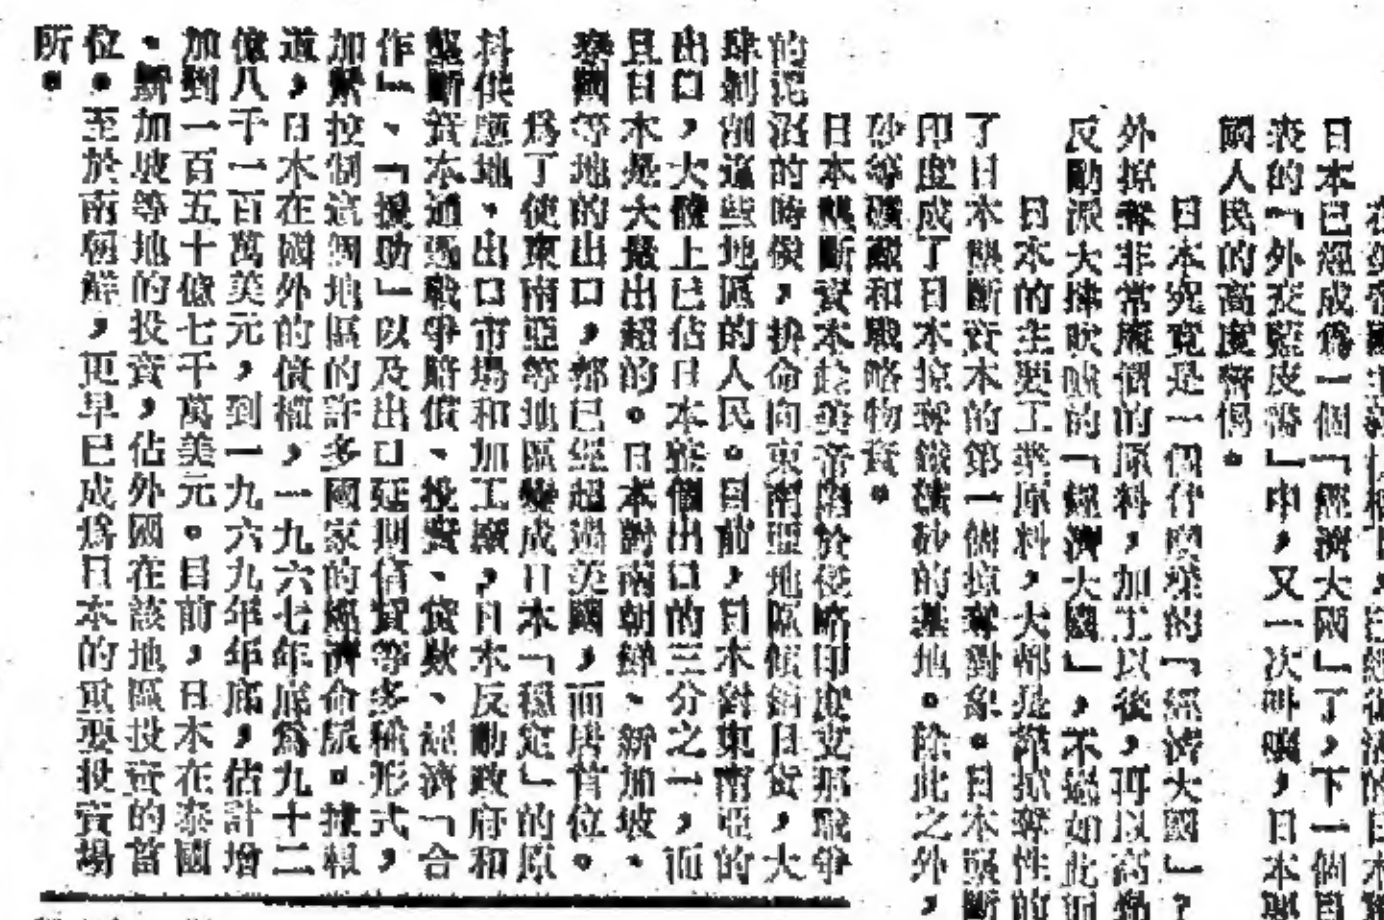 日本已經成爲一個「經濟大國」了，下一個
表的「外交藍皮書」中，又一次叫嚷，日本
國人民的高度警惕。
日本究竟是一個什麼樣的「經濟大國」？
外掠奪非常廉價的原料，加工以後，再以高
反動派大肆吹噓的「經濟大國」，不過如此而
日本的主要工業原料，大都是靠掠奪性的
了日本壟斷資本的第一個掠奪對象。日本壟斷
印度成了日本掠奪鐵礦砂的基地。除此之外，
砂等礦藏和戰略物資。
日本壟斷資本趁美帝陷於侵略印度支那戰爭
的泥沼的時候，拚命向東南亞地區傾銷日貨，大
肆剝削這些地區的人民。目前，日本對東南亞的
出口，大體上已佔日本整個出口的三分之一，而
且日本是大量出超的。日本對南朝鮮、新加坡、
泰國等地的出口，都已經超過美國，而居首位。
爲了使東南亞等地區變成日本「穩定」的原
料供應地、出口市場和加工廠，日本反動政府和
壟斷資本通過戰爭賠償、投資、貸款、經濟「合
作」、「援助」以及出口延期信貸等多種形式，
加緊控制這個地區的許多國家的經濟命脈。據報
道，日本在國外的債權，一九六七年底爲九十二
億八千一百萬美元，到一九六九年年底，估計增
加到一百五十億七千萬美元。目前，日本在泰國
、新加坡等地的投資，佔外國在該地區投資的首
位。至於南朝鮮，更早已成爲日本的重要投資場
所。